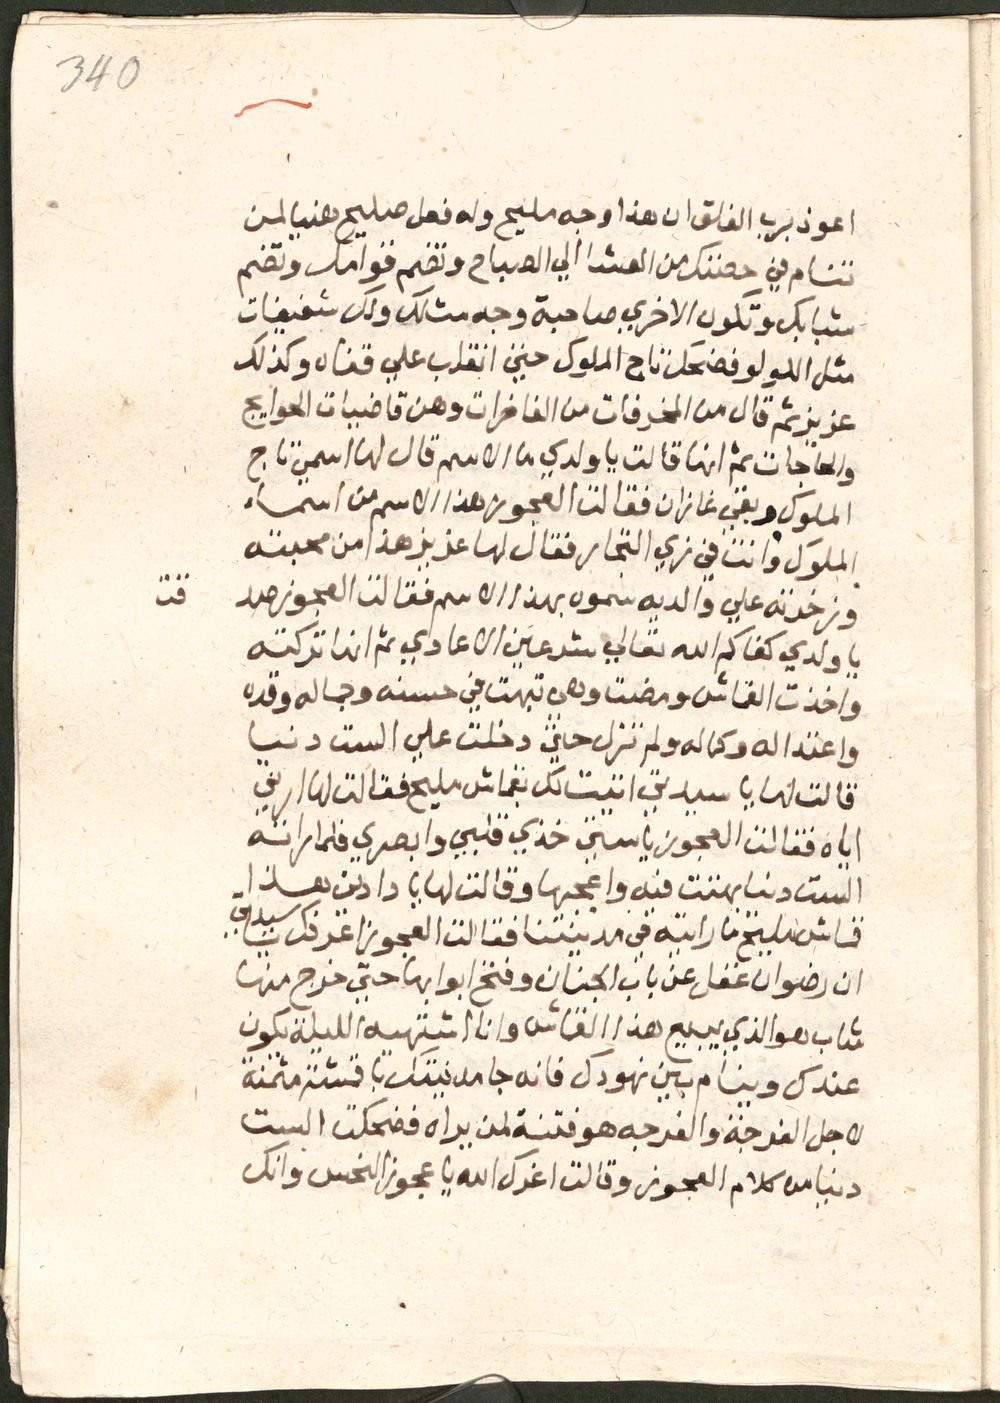 340
اعوذ برب الفلق ان هذا وجه مليح وله فعل صليح هنيا لمن
تنام في حضنك من العشا الي الصباح وتضم قوامك وتضم
شبابك وتكون الاخري صاحبة وجه مثلك ولك شفيفات
مثل اللولو فضحك تاج الملوك حتي انقلب علي قفاه وكذلك
عزيز ثم قال من المخرفات من الفاخرات وهن قاضيات الحوايج
والحاجات ثم انها قالت يا ولدي ما الاسم قال لها اسمي تاج
الملوك وبقي غازان فقالت العجوز هذا الاسم من اسماء
الملوك وانت في زي التجار فقال لها عزيز هذا من محبته
ومرخدته علي والديه سموه بهذا الاسم فقالت العجوز صد
قت
يا ولدي كفاكم الله تعالي شر عين الاعادي ثم انها تركته
واخذت القماش ومضت وهي تبهت في حسنه وجماله وقده
واعتداله وكماله ولم تزل حتي دخلت علي الست دنيا
قالت لها يا سيدتي اتيت لك بقماش مليح فقالت لها اريني
اياه فقالت العجوز يا ستي خذي قلبي وابصري فلما راته
الست دنيا بهتت فيه واعجبها وقالت لها يا دادتي هذا
قماش مليح ما رايته في مدينتنا فقالت العجوز اعرفك يا سيدتي
ان رضوان غفل عن باب الجنان وفتح ابوابها حتي خرج منها
شاب هو الذي يبيع هذا القماش وانا اشتهيه الليلة يكون
عندك وينام بين نهودك فانه جا مدينتك باقمشة مثمنة
لاجل الفرجة والفرجه هو فتنة لمن يراه فضحكت الست
دنيا من كلام العجوز وقالت اغرك الله يا عجوز النحس وانك